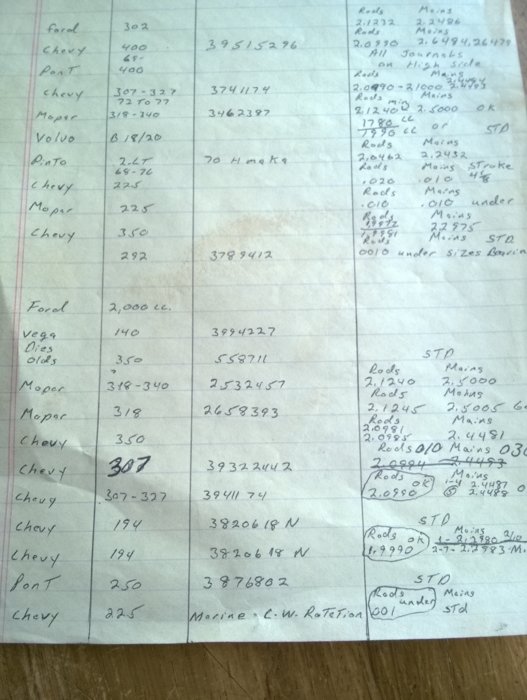 Rods Mains
Ford 302 2.1232 2.2486
Rods Mains
Chevy 400 39515296 2.0990 2.6484, 26479
68- All Journals
Pont 400 on High Side
Rods Mains
2.4484
Chevy 307-327 3741174 2.0990-21000 2.4493
72 To 77 Rods min Mains
Mopar 318-340 3462387 2.1240 2.5000 OK
1780 cc or
Volvo B 18/20 1990 cc STD
Rods Mains
Pinto 2.LT 70 H maka 2.0462 2.2432
68-76 Rods Mains Stroke
Chevy 225 .020 .010 4 1/8
Rods Mains
Mopar 225 .010 .010 under
Rods Mains
Chevy 350 1.9981 22975
Rods Mains STD.
292 3789412 0010 under sizes
Ford 2,000 cc.
Vega 140 3994227
Dies STD
Olds 350 558711
Rods Mains
Mopar 318-340 2532457 2.1240 2.5000
Rods Mains
Mopar 318 2658393 2.1245 2.5005
Rods Mains
2.0981
Chevy 350 2.0985 2.4481
Rods 010 Mains 030
Chevy 307 39322442 2.0984 2.4483
Rods OK Mains
1-4 2.4487
Chevy 307-327 3941174 2.0990 5 2.4488
STD
Chevy 194 3820618 N Rods OK Mains
1- 2.2980
Chevy 194 3820618 N 1.9990 2-7- 2.2983
Pont 250 3876802 STD
Rods under Mains
Chevy 225 Marine - C.W. Rotetion 001 Std